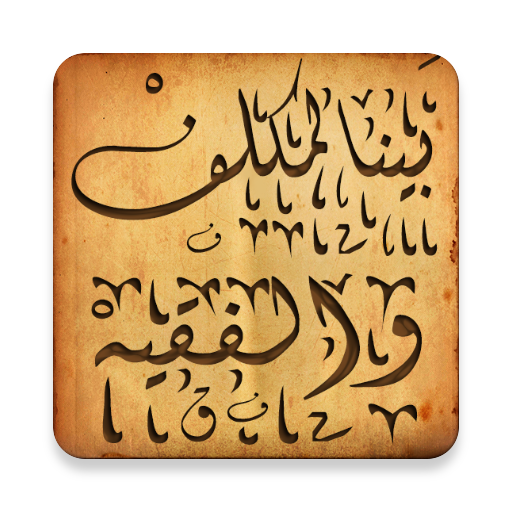 بَين المكلفْ
والفقيه